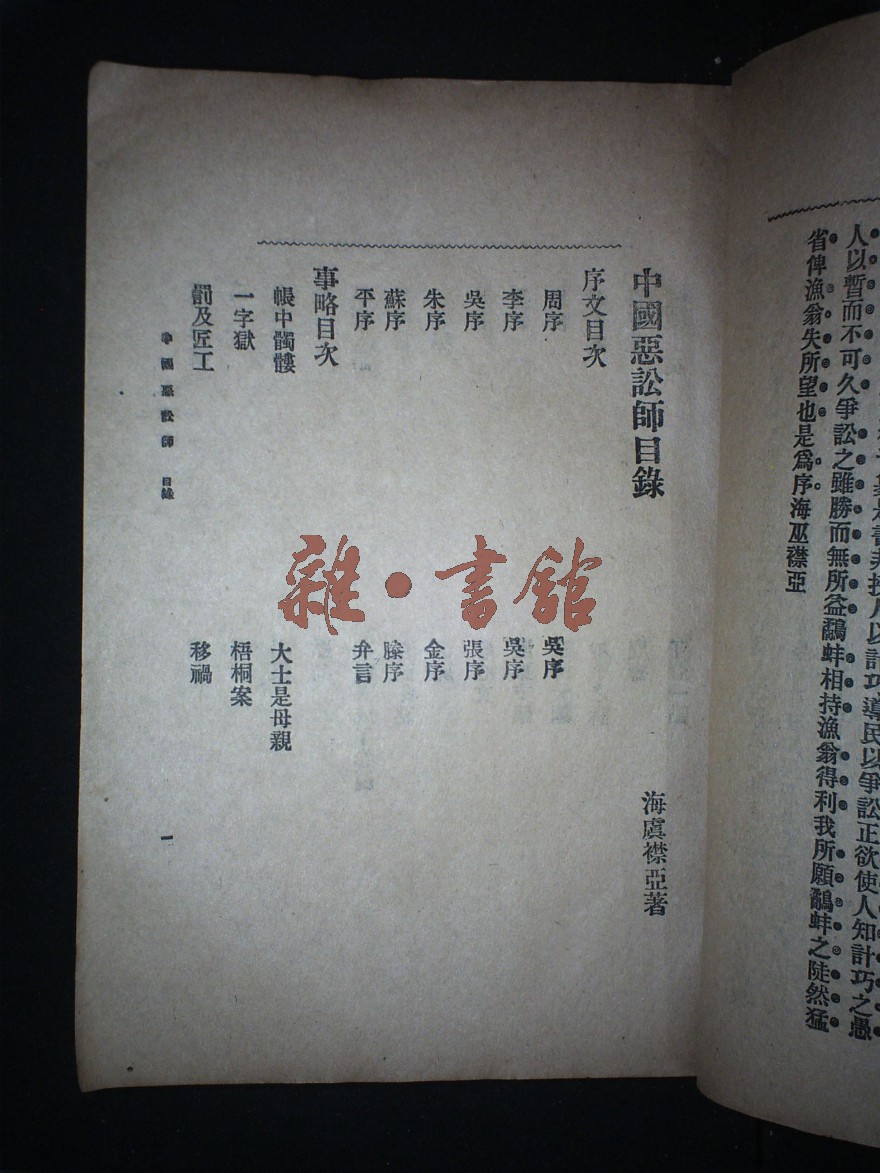 人以暫而不可久爭訟之雖勝而無所益鷸蚌相持漁翁得利我所願鷸蚌之陡然猛
省俾漁翁失所望也是爲序海巫襟亞
中國惡訟師目錄
海虞襟亞著
序文目次
周序 吳序
李序 吳序
吳序 張序
朱序 金序
蘇序 滕序
平序 弁言
事略目次
帳中髑髏 大士是母親
一字獄 梧桐案
罰及匠工 移禍
中國惡訟師 目錄 一
雜·書館